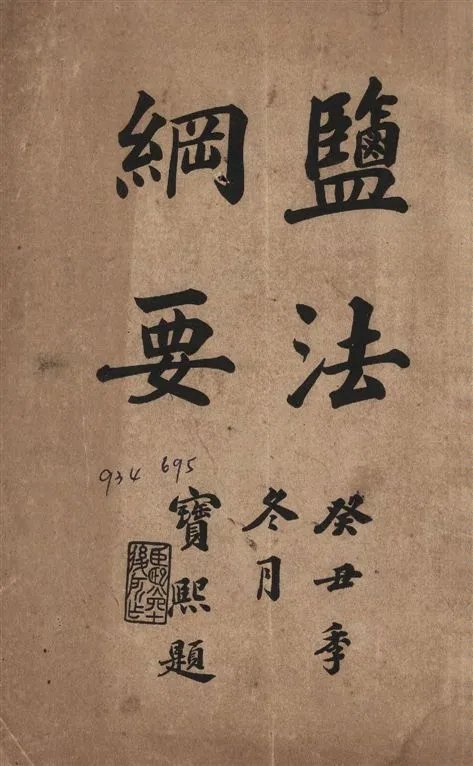 鹽法
綱要
癸丑季
冬月
寶熙題
934 695